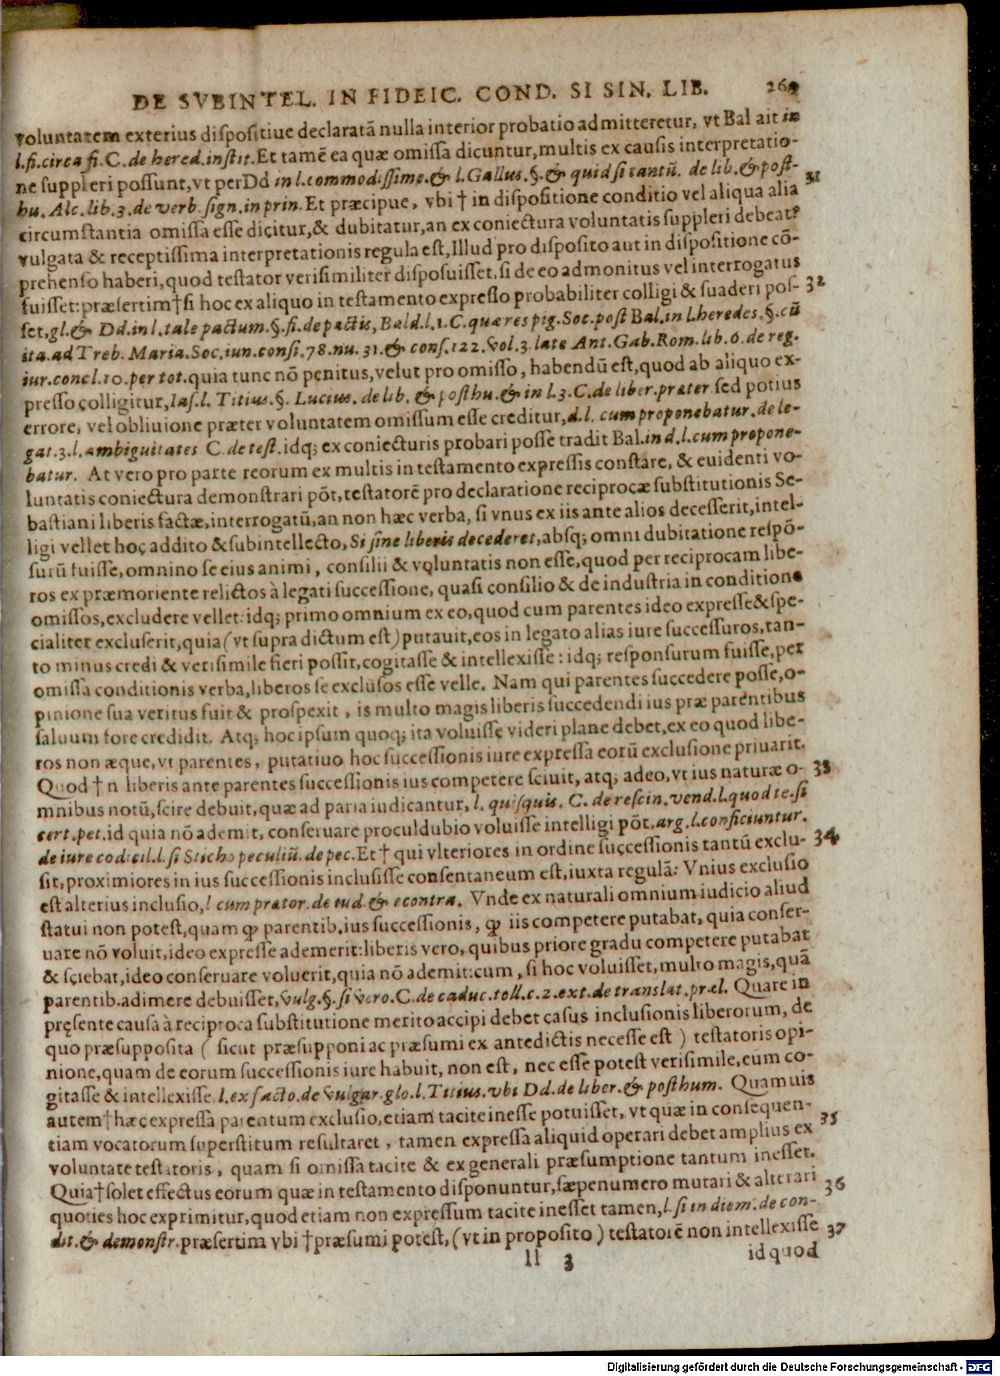 DE SVBINTEL. IN FIDEIC. COND. SI SIN. LIB. 269
voluntatem exterius dispositiue declaratā nulla interior probatio admitteretur, vt Bal ait in
l. fi. circa fi. C. de hered. instit. Et tamē ea quæ omissa dicuntur, multis ex causis interpretatio-
ne suppleri possunt, vt per Dd in l. commodissime. & l. Gallus. §. & quid si tantū. de lib. & post-
hu. Alc. lib. 3. de verb. sign. in prin. Et præcipue, vbi † in dispositione conditio vel aliqua alia 31
circumstantia omissa esse dicitur, & dubitatur, an ex coniectura voluntatis suppleri debeat?
vulgata & receptissima interpretationis regula est, Illud pro disposito aut in dispositione cō-
prehenso haberi, quod testator verisimiliter disposuisset, si de eo admonitus vel interrogatus
fuisset: præsertim † si hoc ex aliquo in testamento expresso probabiliter colligi & suaderi pos- 32
set, gl. & Dd. in l. tale pactum. §. fi. de pactis, Bald. l. 1. C. quæ res pig. Soc. post Bal. in l. heredes. §. cū
ita. ad Treb. Maria. Soc. iun. consi. 78. nu. 31. & cons. 122. vol. 3 late Ant. Gab. Rom. lib. 6. de reg.
iur. concl. 10. per tot. quia tunc nō penitus, velut pro omisso, habendū est, quod ab aliquo ex-
presso colligitur, Ias. l. Titius. §. Lucius. de lib. & posthu. & in l. 3. C. de liber. præter sed potius
errore, vel obliuione præter voluntatem omissum esse creditur, d. l. cum proponebatur. de le-
gat. 3. l. ambiguitates C. de test. idq; ex coniecturis probari posse tradit Bal. in d. l. cum propone-
batur. At vero pro parte reorum ex multis in testamento expressis constare, & euidenti vo-
luntatis coniectura demonstrari pōt, testatorē pro declaratione reciprocæ substitutionis Se-
bastiani liberis factæ, interrogatū, an non hæc verba, si vnus ex iis ante alios decesserit, intel-
ligi vellet hoc addito & subintellecto, Si sine liberis decederet, absq; omni dubitatione respō-
surū fuisse, omnino se eius animi, consilii & voluntatis non esse, quod per reciprocam libe-
ros ex præmoriente relictos à legati successione, quasi consilio & de industria in conditione
omissos, excludere vellet: idq; primo omnium ex eo, quod cum parentes ideo expresse & spe-
cialiter excluserit, quia (vt supra dictum est) putauit, eos in legato alias iure successuros, tan-
to minus credi & verisimile fieri possit, cogitasse & intellexisse: idq; responsurum fuisse, per
omissa conditionis verba, liberos se exclusos esse velle. Nam qui parentes succedere posse, o-
pinione sua veritus fuit & prospexit, is multo magis liberis succedendi ius præ parentibus
saluum fore credidit. Atq; hoc ipsum quoq; ita voluisse videri plane debet, ex eo quod libe-
ros non æque, vt parentes, putatiuo hoc successionis iure expressa eorū exclusione priuarit.
Quod † n liberis ante parentes successionis ius competere sciuit, atq; adeo, vt ius naturæ o- 33
mnibus notū, scire debuit, quæ ad paria iudicantur, l. quisquis. C. de rescin. vend. l. quod te. si
cert. pet. id quia nō ademit, conseruare proculdubio voluisse intelligi pōt, arg. l. conficiuntur.
de iure codicil. l. si Sticho peculiū. de pec. Et † qui vlteriores in ordine successionis tantū exclu- 34
sit, proximiores in ius successionis inclusisse consentaneum est, iuxta regulā: Vnius exclusio
est alterius inclusio, l cum prætor. de iud. & econtra. Vnde ex naturali omnium iudicio aliud
statui non potest, quam ꝙ parentib. ius successionis, ꝙ iis competere putabat, quia conser-
uare nō voluit, ideo expresse ademerit: liberis vero, quibus priore gradu competere putabat
& sciebat, ideo conseruare voluerit, quia nō ademit: cum, si hoc voluisset, multo magis, quā
parentib. adimere debuisset, vulg. §. si vero. C. de caduc. toll. c. 2. ext. de translat. præl. Quare in
pręsente causa à reciproca substitutione merito accipi debet casus inclusionis liberorum, de
quo præsupposita ( sicut præsupponi ac præsumi ex antedictis necesse est ) testatoris opi-
nione, quam de eorum successionis iure habuit, non est, nec esse potest verisimile, eum co-
gitasse & intellexisse. l. ex facto. de vulgar. glo. l. Titius. vbi Dd. de liber. & posthum. Quamuis
autem † hæc expressa parentum exclusio, etiam tacite inesse potuisset, vt quæ in consequen- 35
tiam vocatorum superstitum resultaret, tamen expressa aliquid operari debet amplius ex
voluntate testatoris, quam si omissa tacite & ex generali præsumptione tantum inesset.
Quia † solet effectus eorum quæ in testamento disponuntur, sæpenumero mutari & alterari 36
quoties hoc exprimitur, quod etiam non expressum tacite inesset tamen, l. si in diem. de con-
dit. & demonstr. præsertim vbi † præsumi potest, (vt in proposito) testatorē non intellexisse 37
ll 3 id quod
Digitalisierung gefördert durch die Deutsche Forschungsgemeinschaft - DFG